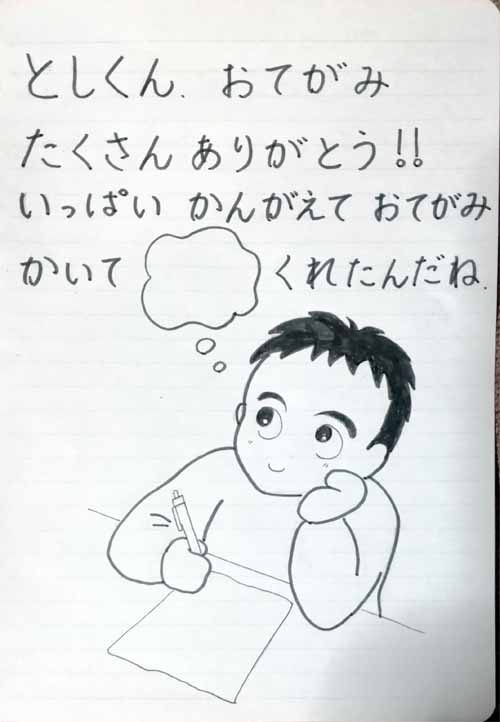 としくん、おてがみ
たくさん ありがとう!!
いっぱい かんがえて おてがみ
かいて くれたんだね.